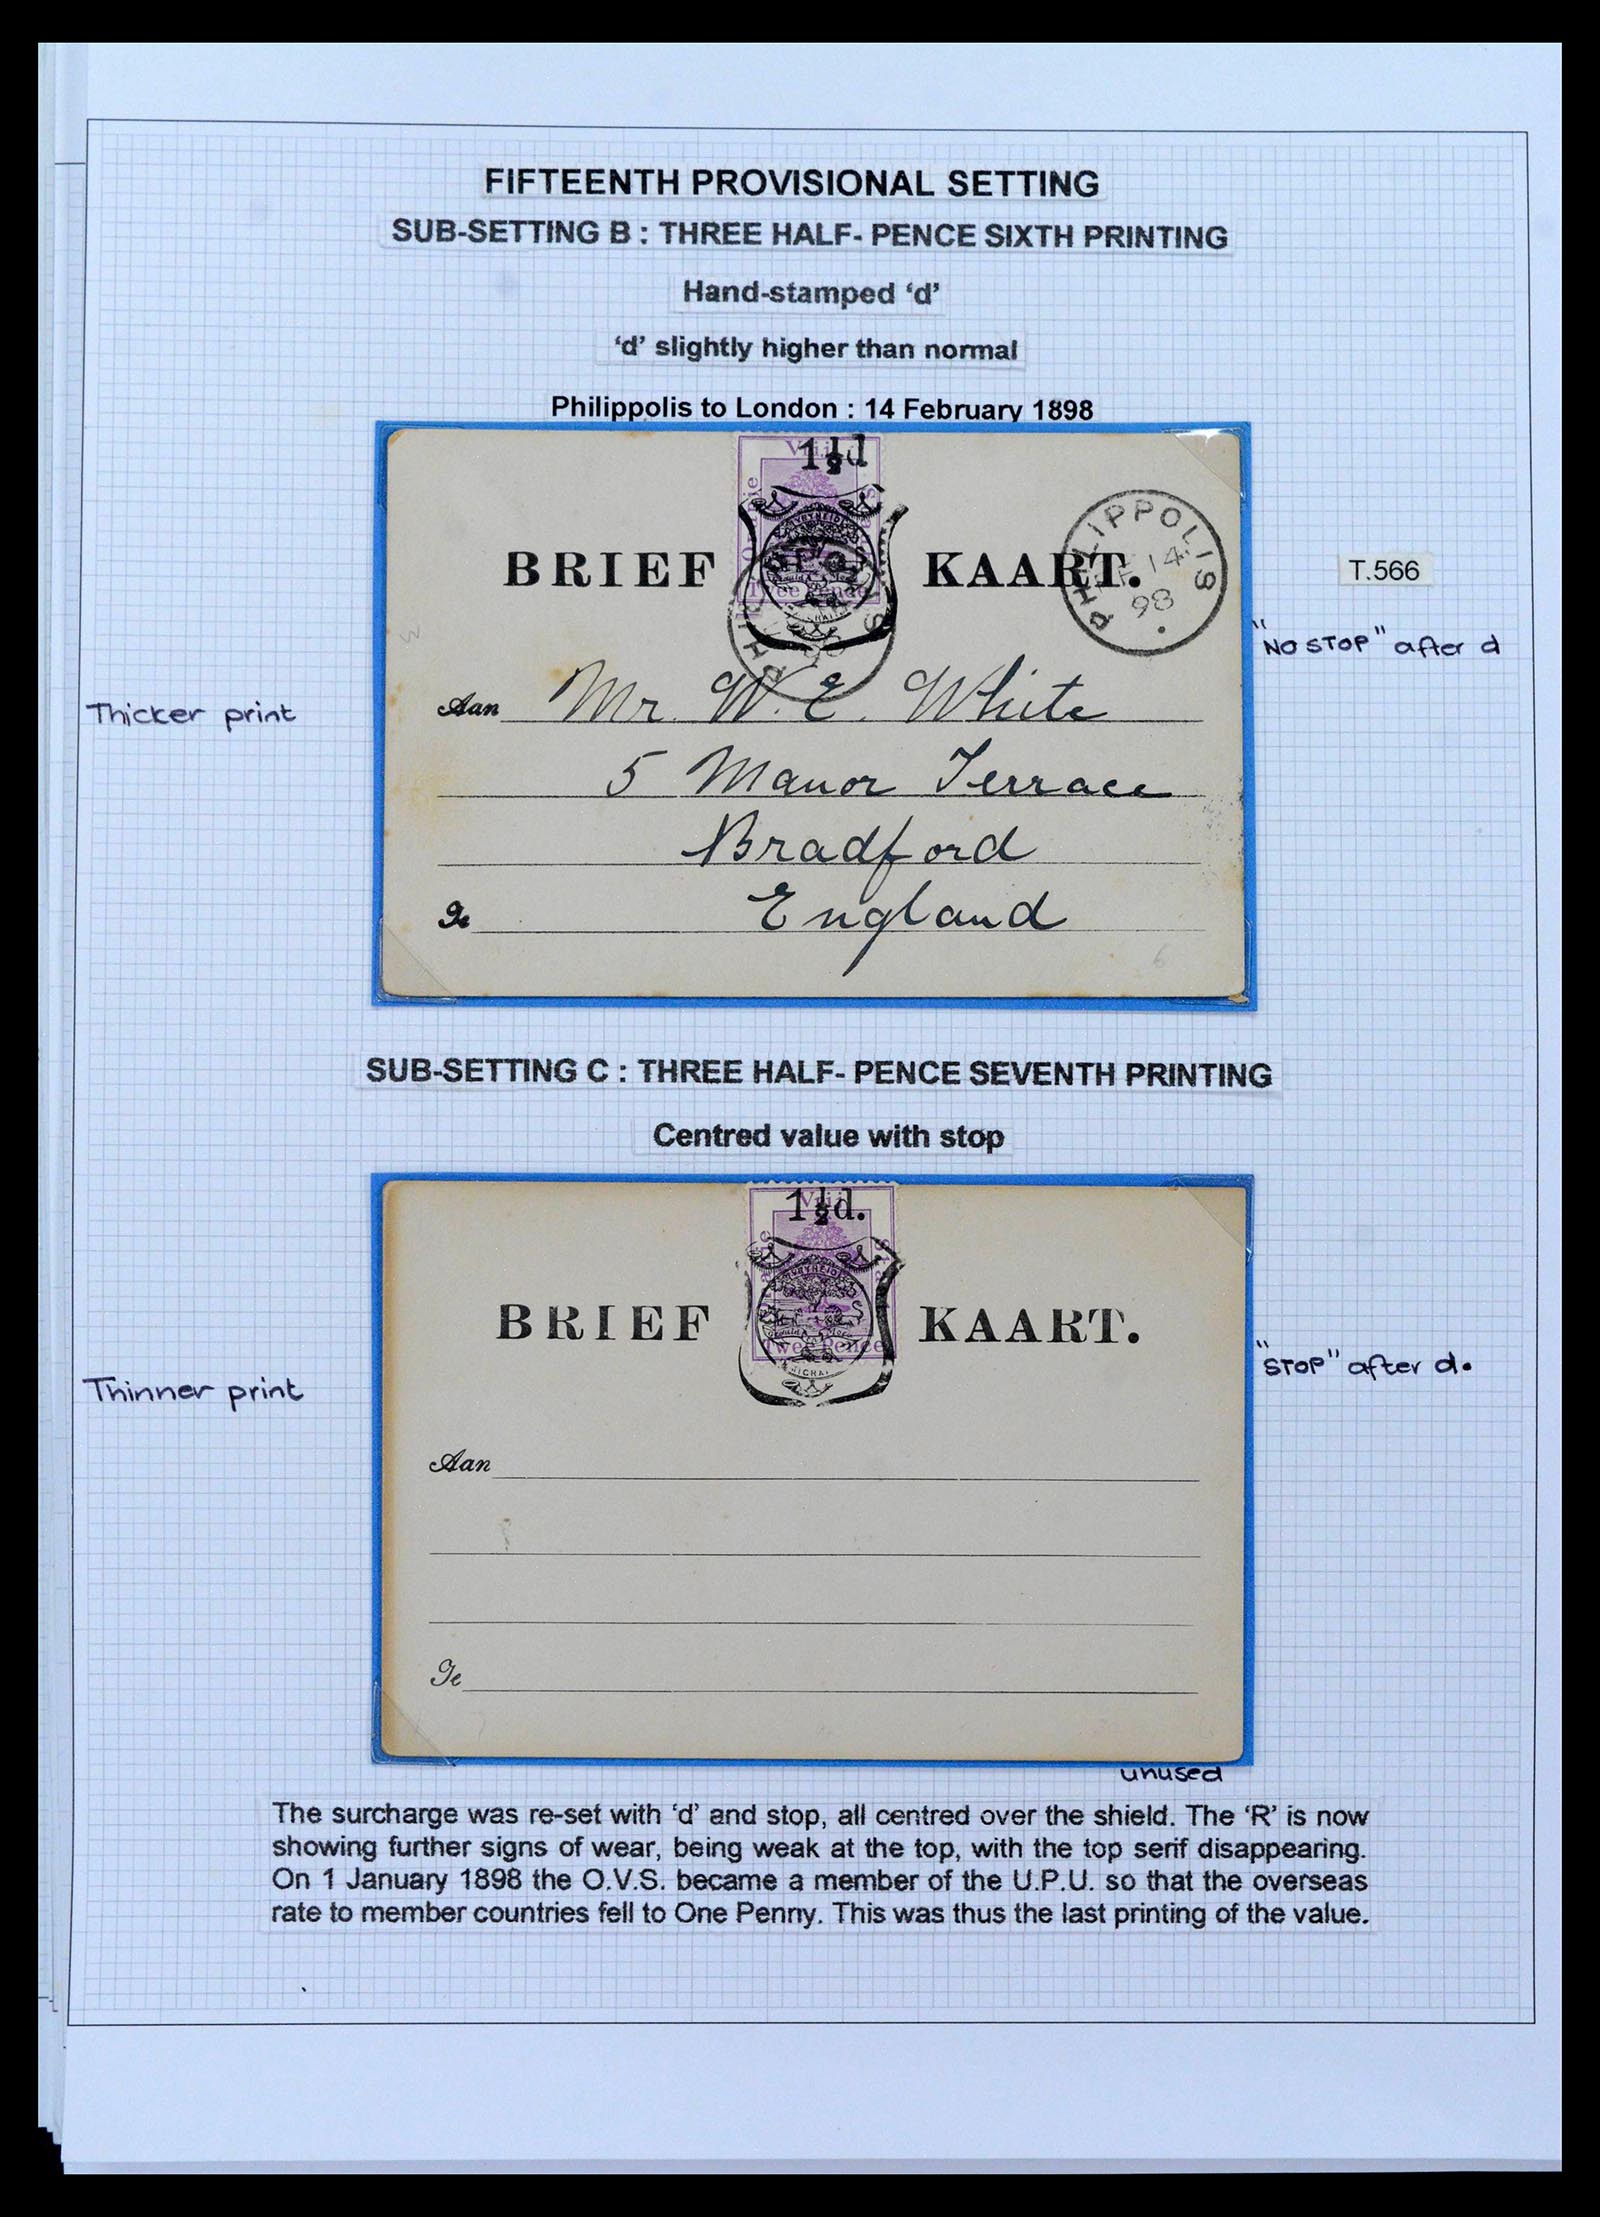 FIFTEENTH PROVISIONAL SETTING
SUB-SETTING B : THREE HALF- PENCE SIXTH PRINTING
Hand-stamped ‘d’
‘d’ slightly higher than normal
Philippolis to London : 14 February 1898
1½d
Vrij
BRIEF KAART.
PHILIPPOLIS
FE 14
98
Twee Pence
T.566
"NO STOP" after d
Thicker print
Aan Mr. W. E. White
5 Manor Terrace
Bradford
Te England
6
SUB-SETTING C : THREE HALF- PENCE SEVENTH PRINTING
Centred value with stop
1½d.
Vrij
BRIEF KAART.
Twee Pence
"STOP" after d.
Thinner print
Aan
Te
unused
The surcharge was re-set with ‘d’ and stop, all centred over the shield. The ‘R’ is now
showing further signs of wear, being weak at the top, with the top serif disappearing.
On 1 January 1898 the O.V.S. became a member of the U.P.U. so that the overseas
rate to member countries fell to One Penny. This was thus the last printing of the value.